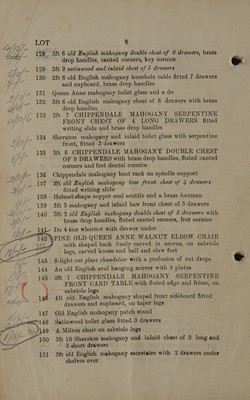 LOT 6
128 3ft 6 old English mahogany double chest of 8 drawers, brass
drop handles, canted corners, key cornice
129 2ft 9 satinwood and inlaid chest of 5 drawers
130 2ft 6 old English mahogany kneehole table fitted 7 drawers
and cupboard, brass handles
131 Queen Anne mahogany toilet glass and a do
132 3ft 6 old English mahogany chest of 8 drawers with brass
drop handles
133 3ft 7 CHIPPENDALE MAHOGANY SERPENTINE
FRONT CHEST OF 4 LONG DRAWERS fitted
writing slide and brass drop handles
134 Sheraton mahogany and inlaid toilet glass with serpentine
front, fitted 3 drawers
135 3ft 6 CHIPPENDALE MAHOGANY DOUBLE CHEST
OF 8 DRAWERS with brass drop handles, fluted canted
corners and fret dentil cornice
136 Chippendale mahogany boot rack on spindle support
137 3ft old English mahogany bow front chest of 4 drawers
fitted writing slide
138 Helmet-shape copper coal scuttle and a brass footman
139 3ft 3 mahogany and inlaid bow front chest of 5 drawers
140 3ft 3 old English mahogany double chest of 8 drawers with
brass drop handles, fluted canted corners, fret cornice
141 Do 4 tier whatnot with drawer under
142 FINE OLD QUEEN ANNE WALNUT ELBOW CHAIR
with shaped back finely carved in acorns, on cabriole
legs, carved knees and ball and claw feet
143 8-light cut glass chandelier with a profusion of cut drops
144 An old English oval hanging mirror with 9 plates
145 3ft 1 CHIPPENDALE MAHOGANY SERPENTINE
FRONT CARD TABLE with fluted edge and frieze, on
cabriole legs
146 4ft old English mahogany shaped front sideboard fitted
drawers and cupboard, on taper legs
147 Old English mahogany patch stand
148 Satinwood toilet glass fitted 3 drawers
149 A Milton chair on cabriole legs
150 3ft 10 Sheraton mahogany and inlaid chest of 3 long and
2 short drawers
151 3ft old English mahogany secretaire with 2 drawers under
shelves over